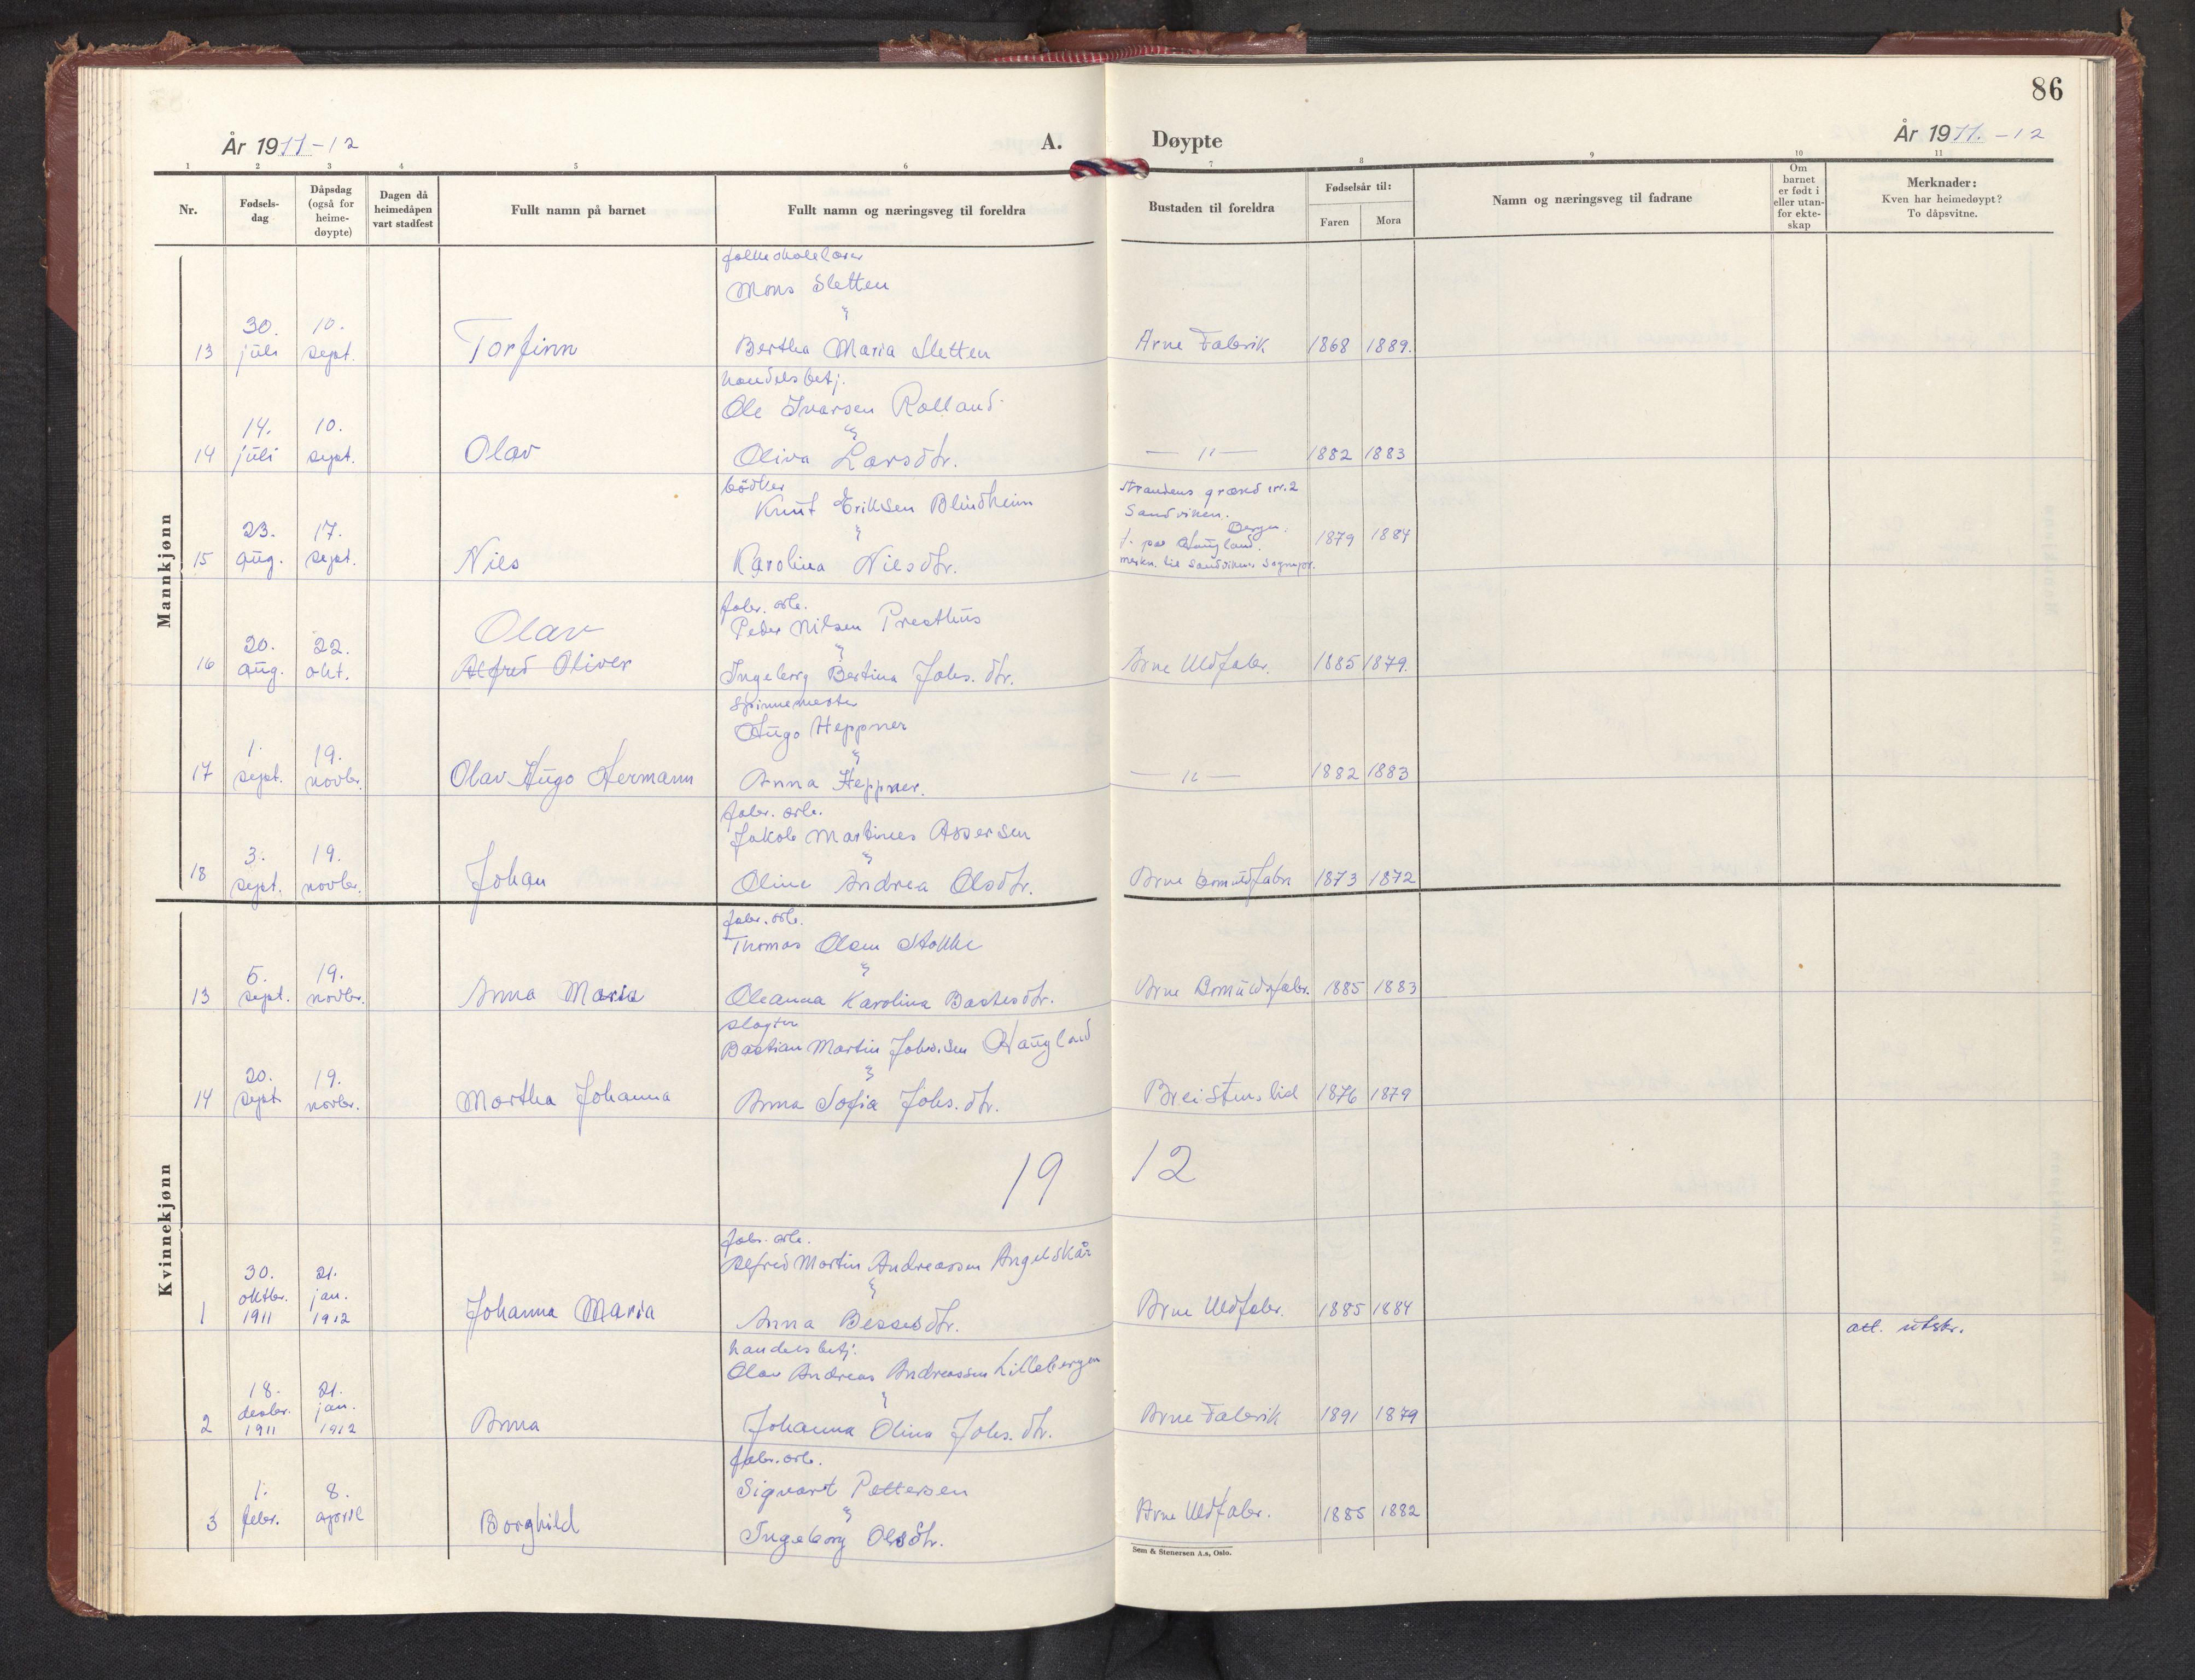 86
År 1911-12
A.
Døypte
År 1911.-12
1 2 3 4 5 6 7 8 9 10 11
Nr.
Fødsels-
dag
Dåpsdag
(også for
heime-
døypte)
Dagen då
heimedåpen
vart stadfest
Fullt namn på barnet
Fullt namn og næringsveg til foreldra
Bustaden til foreldra
Fødselsår til:
Faren Mora
Namn og næringsveg til fadrane
Om
barnet
er født i
eller utan-
for ekte-
skap
Merknader:
Kven har heimedøypt?
To dåpsvitne.
Mannkjønn
folkeskolelærer
Mons Sletten
"
30. 10.
13 juli sept. Torfinn Bertha Maria Sletten Arne Fabrik 1868 1889.
handelsbetj.
Ole Ivarsen Rolland
"
14. 10.
14 juli sept. Olav Oliva Larsdtr. — " — 1882 1883
bödker
Knut Eriksen Blindheim
"
Strandens grænd nr. 2
Sandviken.
Bergen.
f. paa Haugland.
merkn. til Sandvikens sognepr.
23. 17.
15 aug. sept. Nils Karolina Nilsdtr. 1879 1884
fabr. arb.
Peder Nilsen Presthus
"
20. 22. Olav
16 aug. okt. Alfred Oliver Ingeborg Bertina Johs. dtr. Arne Uldfabr. 1885 1879.
Spinnemester
Hugo Heppner
"
1. 19.
17 sept. novbr. Olav Hugo Hermann Anna Heppner. — " — 1882 1883
fabr. arb.
Jakob Martines Assersen
"
3. 19.
18 sept. novbr. Johan Oline Andrea Olsdtr. Arne Bomuldfabr 1873 1872
Kvinnekjønn
fabr. arb.
Thomas Olsen Stokke
"
5. 19.
13 sept. novbr. Anna Maria Oleanna Karolina Bastesdtr. Arne Bomuldsfabr. 1885 1883
slagter
Bastian Martin Johs.sen Haugland
"
20. 19.
14 sept novbr. Martha Johanna Anna Sofia Johs. dtr. Breistenslid 1876 1879
19 12
fabr. arb.
Alfred Martin Andreassen Angelskår
"
30. 21.
oktbr. jan.
1 1911 1912 Johanna Maria Anna Bessesdtr. Arne Uldfabr. 1885 1884
att. utskr.
handelsbetj.
Olav Andreas Andreassen Lillebergen
"
18. 21.
desbr. jan.
2 1911 1912 Anna Johanna Olina Johs. dtr. Arne Fabrik 1891 1879
fabr. arb.
Sigvart Pettersen
"
1. 8.
3 febr. april Borghild Ingeborg Olsdtr. Arne Uldfabr. 1885 1882
Sem & Stenersen A.s, Oslo.